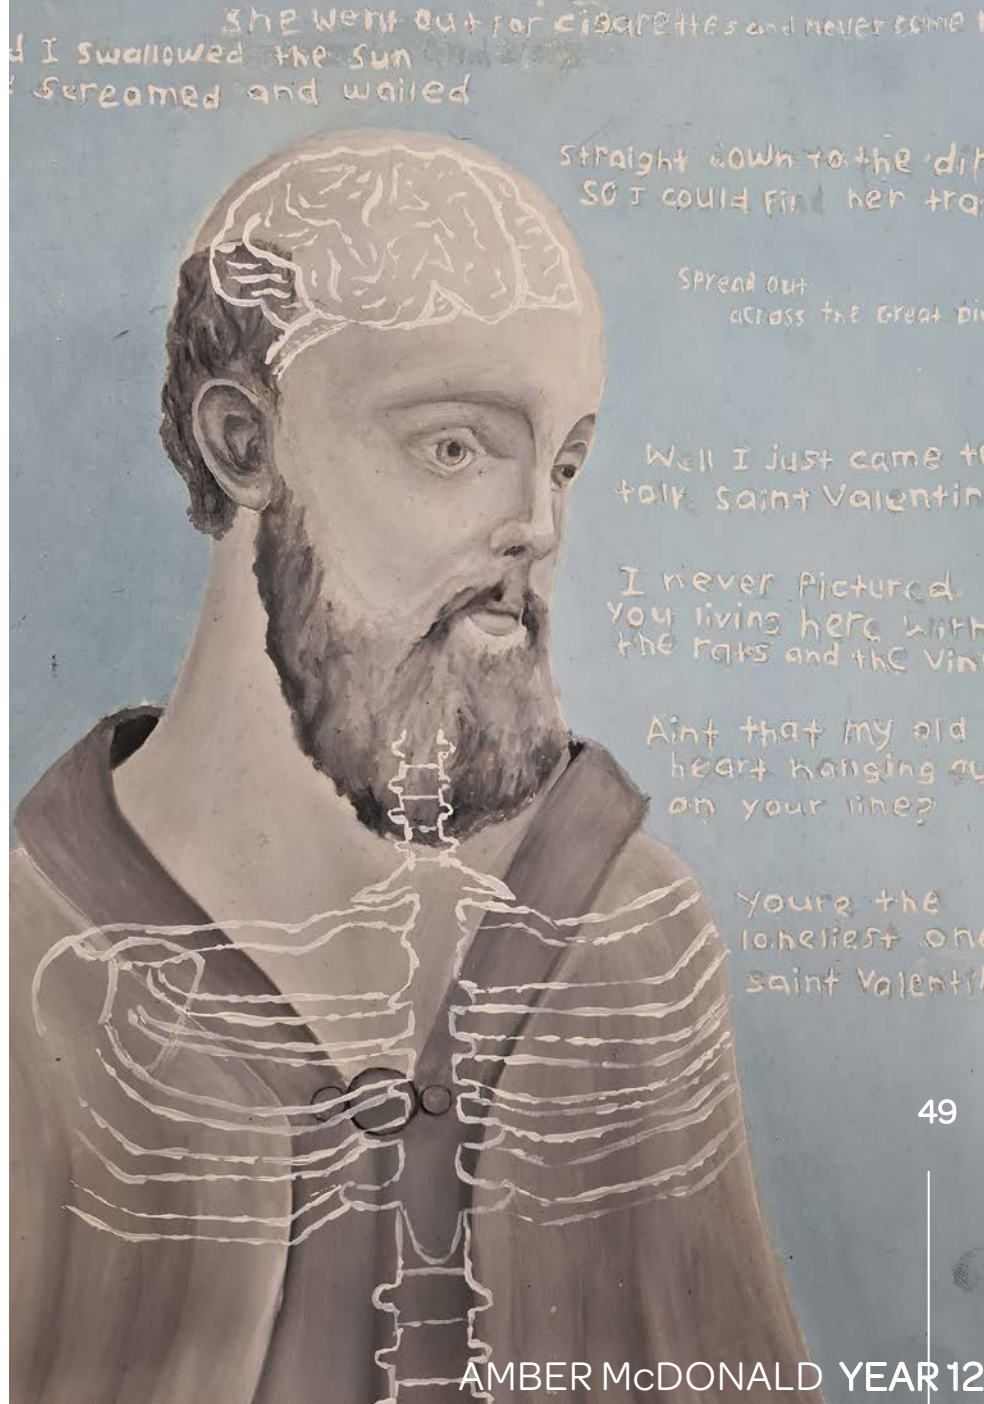 She went out for cigarettes and never came
d I swallowed the sun
screamed and wailed
straight down to the dir
so I could fin her tra
spread out
across the Great Di
Well I just came t
talk saint Valentin
I never Pictured
you living here with
the rats and the Vin
Aint that my old
heart hanging ou
on your line?
Youre the
loneliest one
saint Valenti
49
AMBER McDONALD YEAR 12